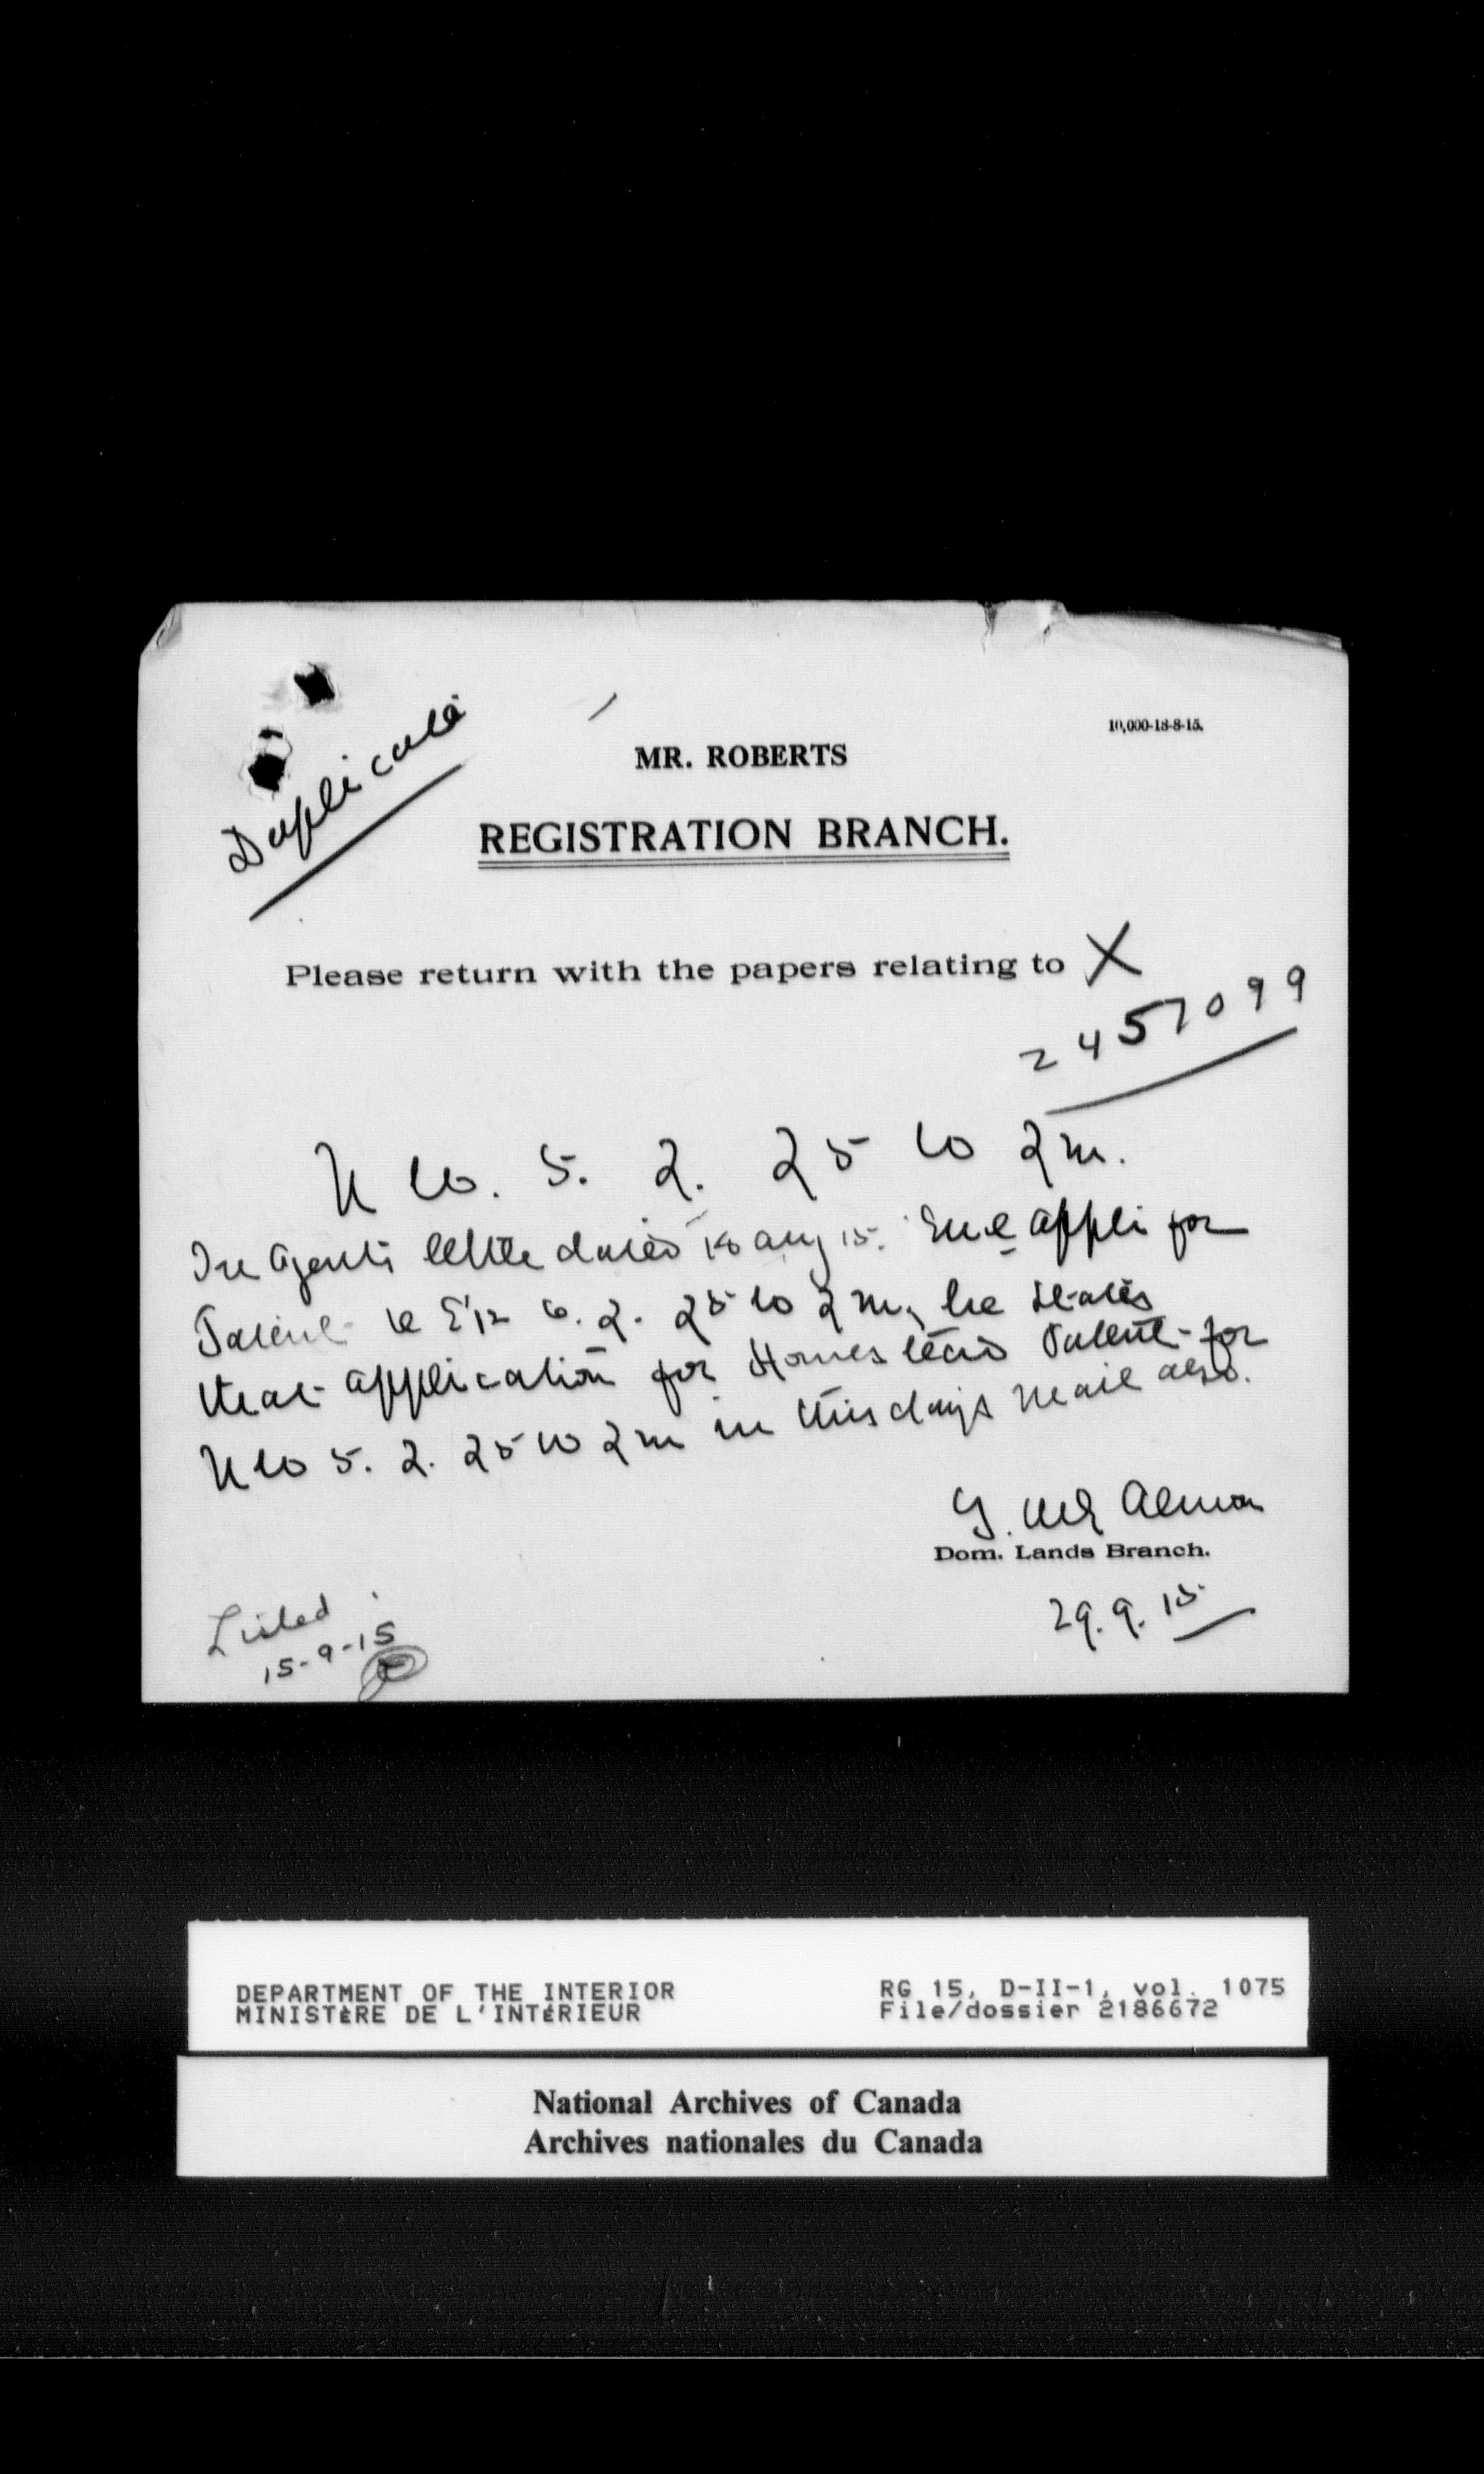 Duplicate
10,000-18-8-15.
MR. ROBERTS
REGISTRATION BRANCH.
Please return with the papers relating to X
2457099
N W. 5. 2. 25 W 2 m.
In Agents letter dated 18 aug 15. Encl appli for
Patent to E½ 6. 2. 25 W 2 m, he states
that application for Homestead Patent for
N W 5. 2. 25 W 2 m in this days mail also.
Almon
Dom. Lands Branch.
29. 9. 15.
Listed
15-9-15
DEPARTMENT OF THE INTERIOR
MINISTÈRE DE L'INTÉRIEUR
RG 15, D-II-1, vol. 1075
File/dossier 2186672
National Archives of Canada
Archives nationales du Canada